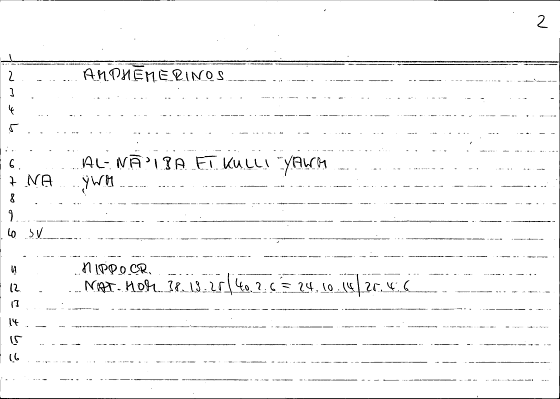 2
1
2 AMPHĒMERINOS
3
4
5
6 AL-NĀ'IBA ET KULLI YAWM
7 NA YWM
8
9
10 SV
11 HIPPOCR.
12 NAT. HOM. 38.19.25/40.2.6 = 24.10.14/25.4.6
13
14
15
16